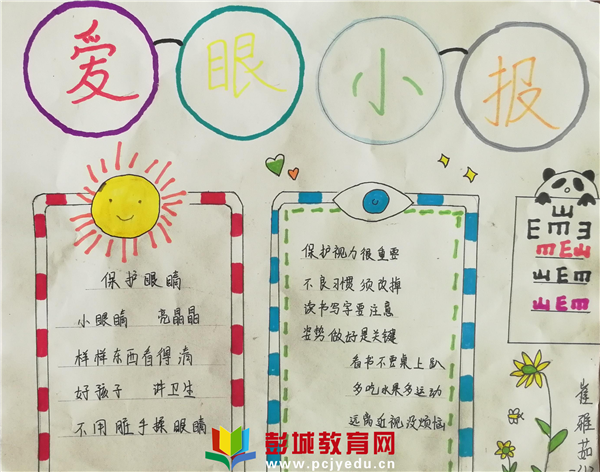 爱眼小报
保护眼睛
小眼睛 亮晶晶
样样东西看得清
好孩子 讲卫生
不用脏手揉眼睛
保护视力很重要
不良习惯须改掉
读书写字要注意
姿势做好是关键
看书不要桌上趴
多吃水果多运动
远离近视没烦恼
崔雅茹
彭城教育网
www.pcjyedu.cn